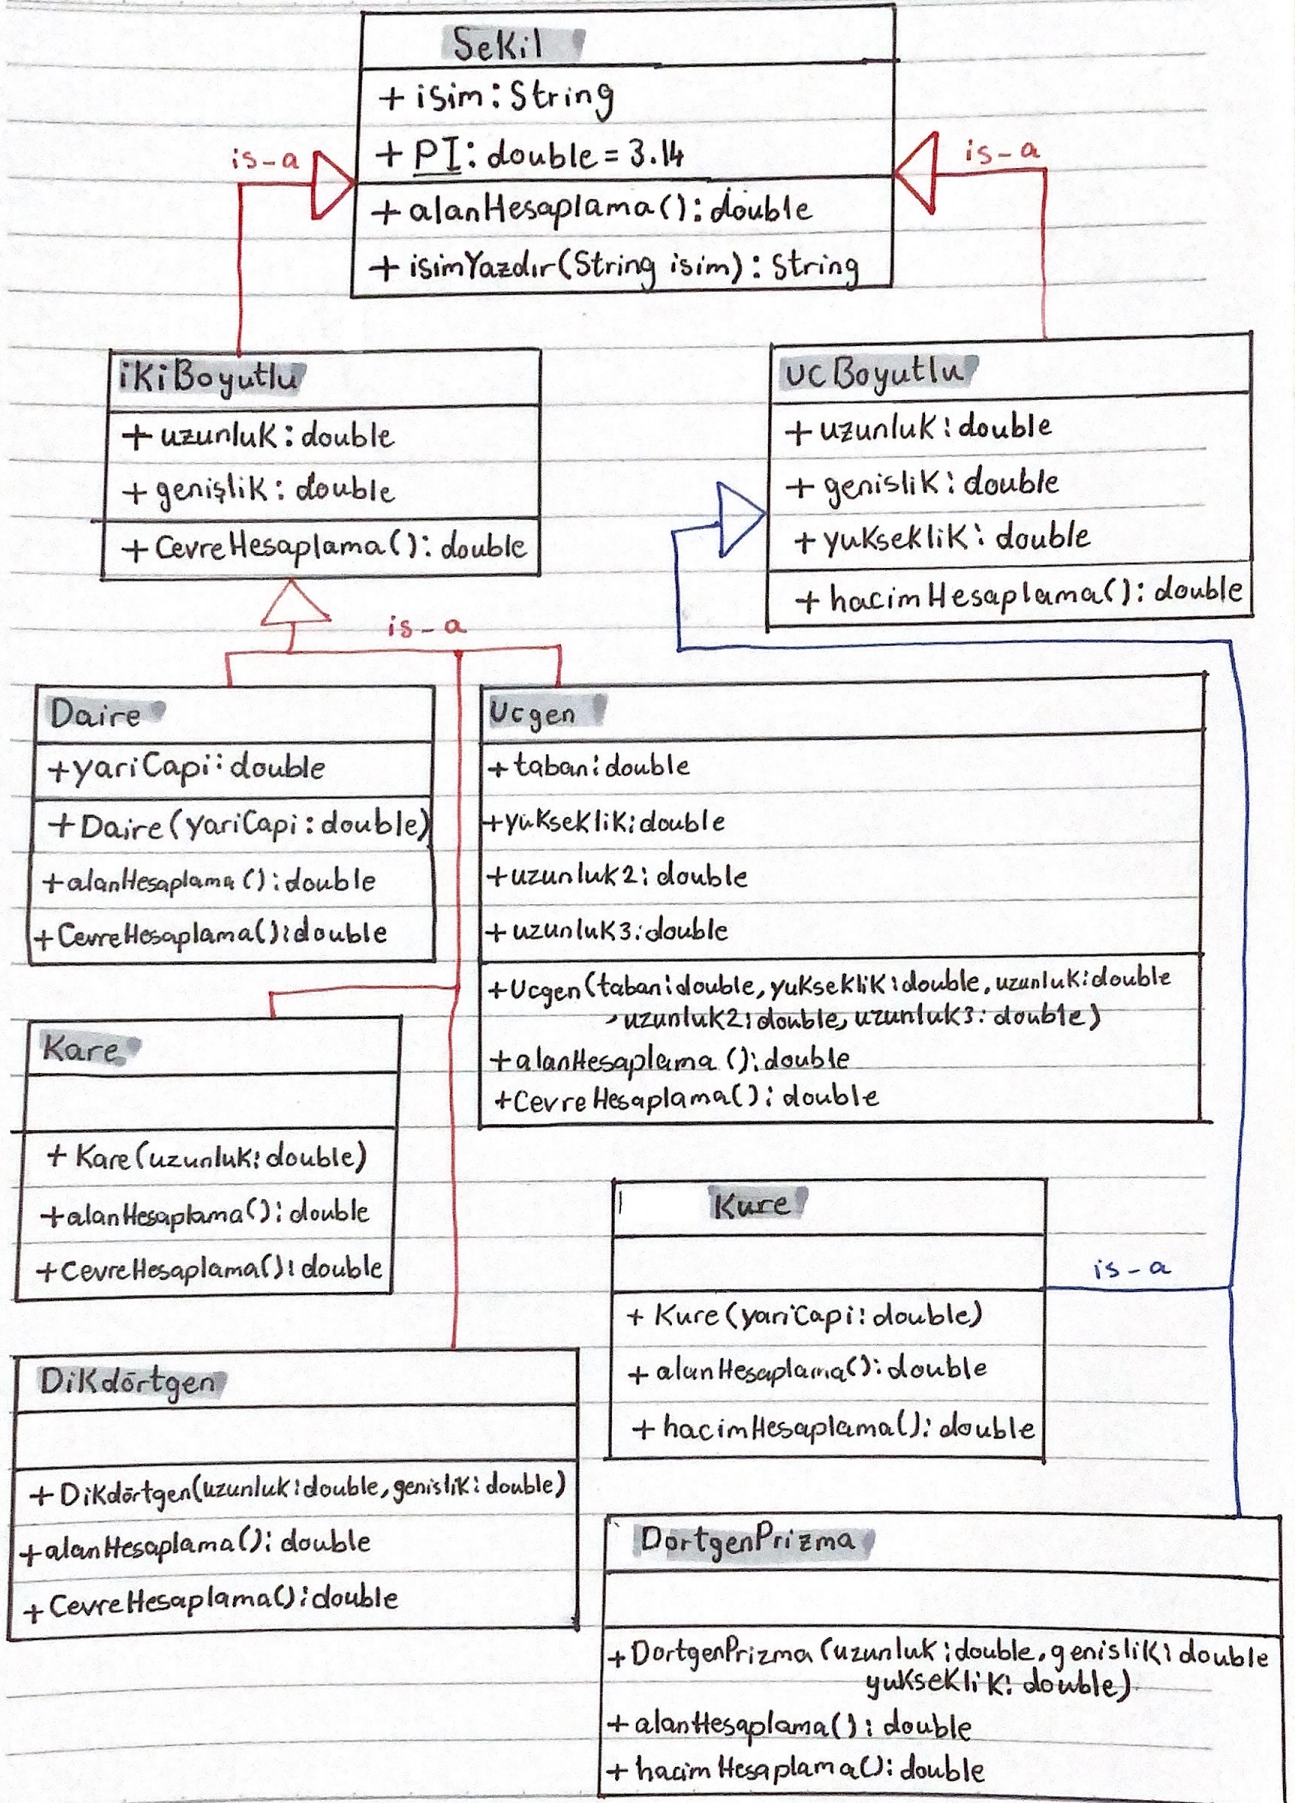 Sekil
+ isim: String
+ PI: double = 3.14
+ alanHesaplama(): double
+ isimYazdır(String isim): String
is-a
is-a
ikiBoyutlu
+ uzunluk: double
+ genişlik: double
+ CevreHesaplama(): double
ucBoyutlu
+ uzunluk: double
+ genislik: double
+ yukseklik: double
+ hacimHesaplama(): double
is-a
Daire
+yariCapi: double
+Daire(yariCapi: double)
+alanHesaplama(): double
+CevreHesaplama(): double
Ucgen
+taban: double
+yukseklik: double
+uzunluk2: double
+uzunluk3: double
+Ucgen(taban: double, yukseklik: double, uzunluk: double
, uzunluk2: double, uzunluk3: double)
+alanHesaplama(): double
+CevreHesaplama(): double
Kare
+ Kare(uzunluk: double)
+alanHesaplama(): double
+CevreHesaplama(): double
Kure
+ Kure(yariCapi: double)
+ alanHesaplama(): double
+ hacimHesaplama(): double
is-a
Dikdörtgen
+ Dikdörtgen(uzunluk: double, genislik: double)
+alanHesaplama(): double
+CevreHesaplama(): double
DortgenPrizma
+DortgenPrizma(uzunluk: double, genislik: double
yukseklik: double)
+ alanHesaplama(): double
+ hacimHesaplama(): double